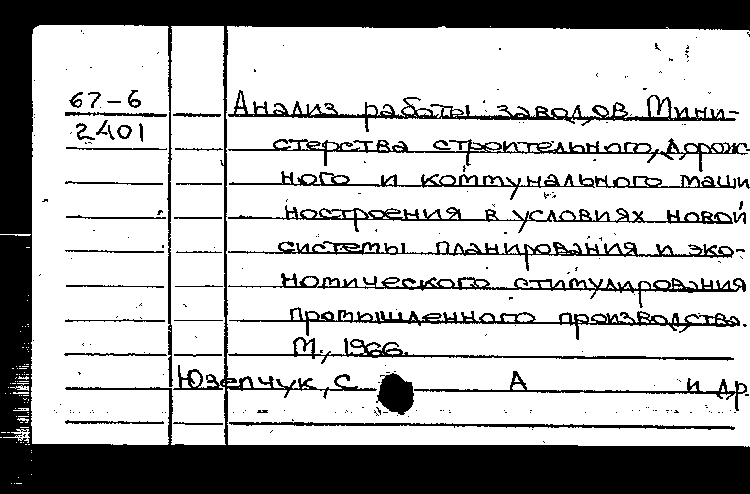 67-6
2401
Анализ работы заводов Мини-
стерства строительного, дорож
ного и коммунального маши
ностроения в условиях новой
системы планирования и эко-
номического стимулирования
промышленного производства.
М., 1966.
Юзепчук, С А и др.